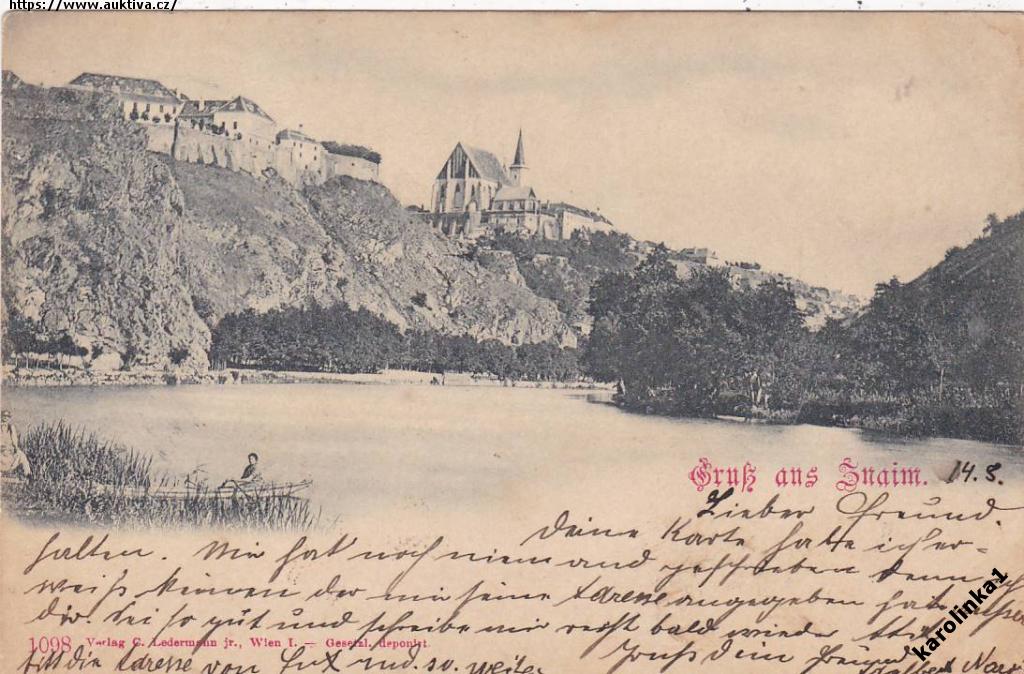 https://www.auktiva.cz/
Gruß aus Znaim. 14.8.
Lieber Freund.
Deine Karte hatte ich er-
halten. Mir hat noch niemand geschrieben denn
weiß keinen der mir seine Adresse angegeben hat
dir. Sei so gut und schreibe mir recht bald wieder
1098 Verlag C. Ledermann jr., Wien I. — Gesetzl. deponirt.
die Adresse von u.s.d. so. weiter
Gruß dein Freund
karolinka1